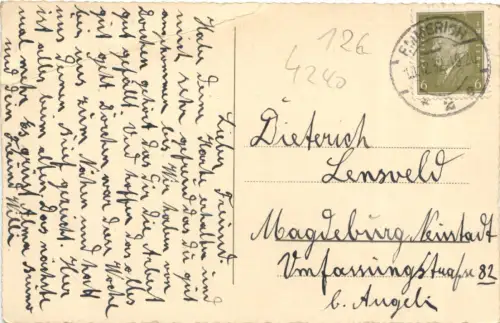 Lieber Freund
Habe deine Karte erhalten und
mich sehr gefreut das du gut
angekommen bist. Wir haben von
Dorchen gehört das Dir die Arbeit
gut gefällt und hoffen das alles
gut geht. Dorchen war den Woche
bei uns zum Nähen und hat
uns Deinen Brief gezeigt. Hier
ist alles beim alten das nächste
mal mehr. Es grüßt Alma Bruno
und dein Freund
Willi
126
4240
EMMERICH
6
Dieterich
Lensveld
Magdeburg Neustadt
Umfassungstraße 82
b. Angeli